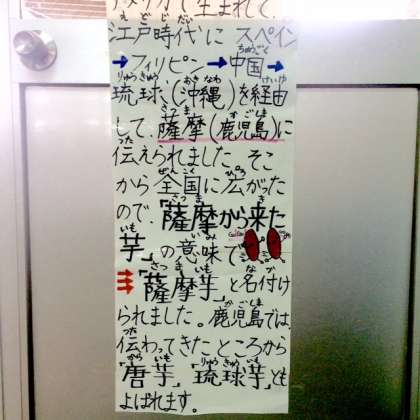 アメリカで生まれて、
江戸時代に スペイン
→フィリピン→中国→
琉球、(沖縄)を経由
して、薩摩(鹿児島)に
伝えられました。そこ
から全国に広がった
ので、「薩摩から来た
芋」の意味で
「薩摩芋」と名付け
られました。鹿児島では、
伝わってきたところから
「唐芋」「琉球芋」とも
よばれます。